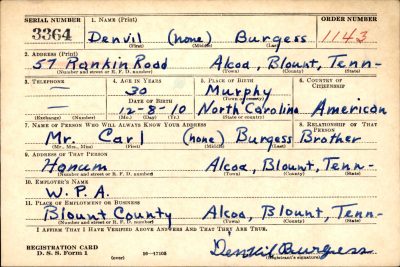 SERIAL NUMBER 1. NAME (Print) ORDER NUMBER
3364 Denvil (none) Burgess 1143
(First) (Middle) (Last)
2. ADDRESS (Print)
57 Rankin Road Alcoa, Blount, Tenn-
(Number and street or R. F. D. number) (Town) (County) (State)
3. TELEPHONE 4. AGE IN YEARS 5. PLACE OF BIRTH 6. COUNTRY OF CITIZENSHIP
— 30 Murphy
DATE OF BIRTH (Town or county)
— 12-8-10 North Carolina American
(Exchange) (Number) (Mo.) (Day) (Yr.) (State or country)
7. NAME OF PERSON WHO WILL ALWAYS KNOW YOUR ADDRESS 8. RELATIONSHIP OF THAT PERSON
Mr. Carl (none) Burgess Brother
(Mr., Mrs., Miss) (First) (Middle) (Last)
9. ADDRESS OF THAT PERSON
Hanum Alcoa, Blount, Tenn-
(Number and street or R. F. D. number) (Town) (County) (State)
10. EMPLOYER'S NAME
W.P.A.
11. PLACE OF EMPLOYMENT OR BUSINESS
Blount County Alcoa, Blount, Tenn-
(Number and street or R. F. D. number) (Town) (County) (State)
I AFFIRM THAT I HAVE VERIFIED ABOVE ANSWERS AND THAT THEY ARE TRUE.
REGISTRATION CARD
D. S. S. Form 1 (over) Denvil Burgess
(Registrant's signature)